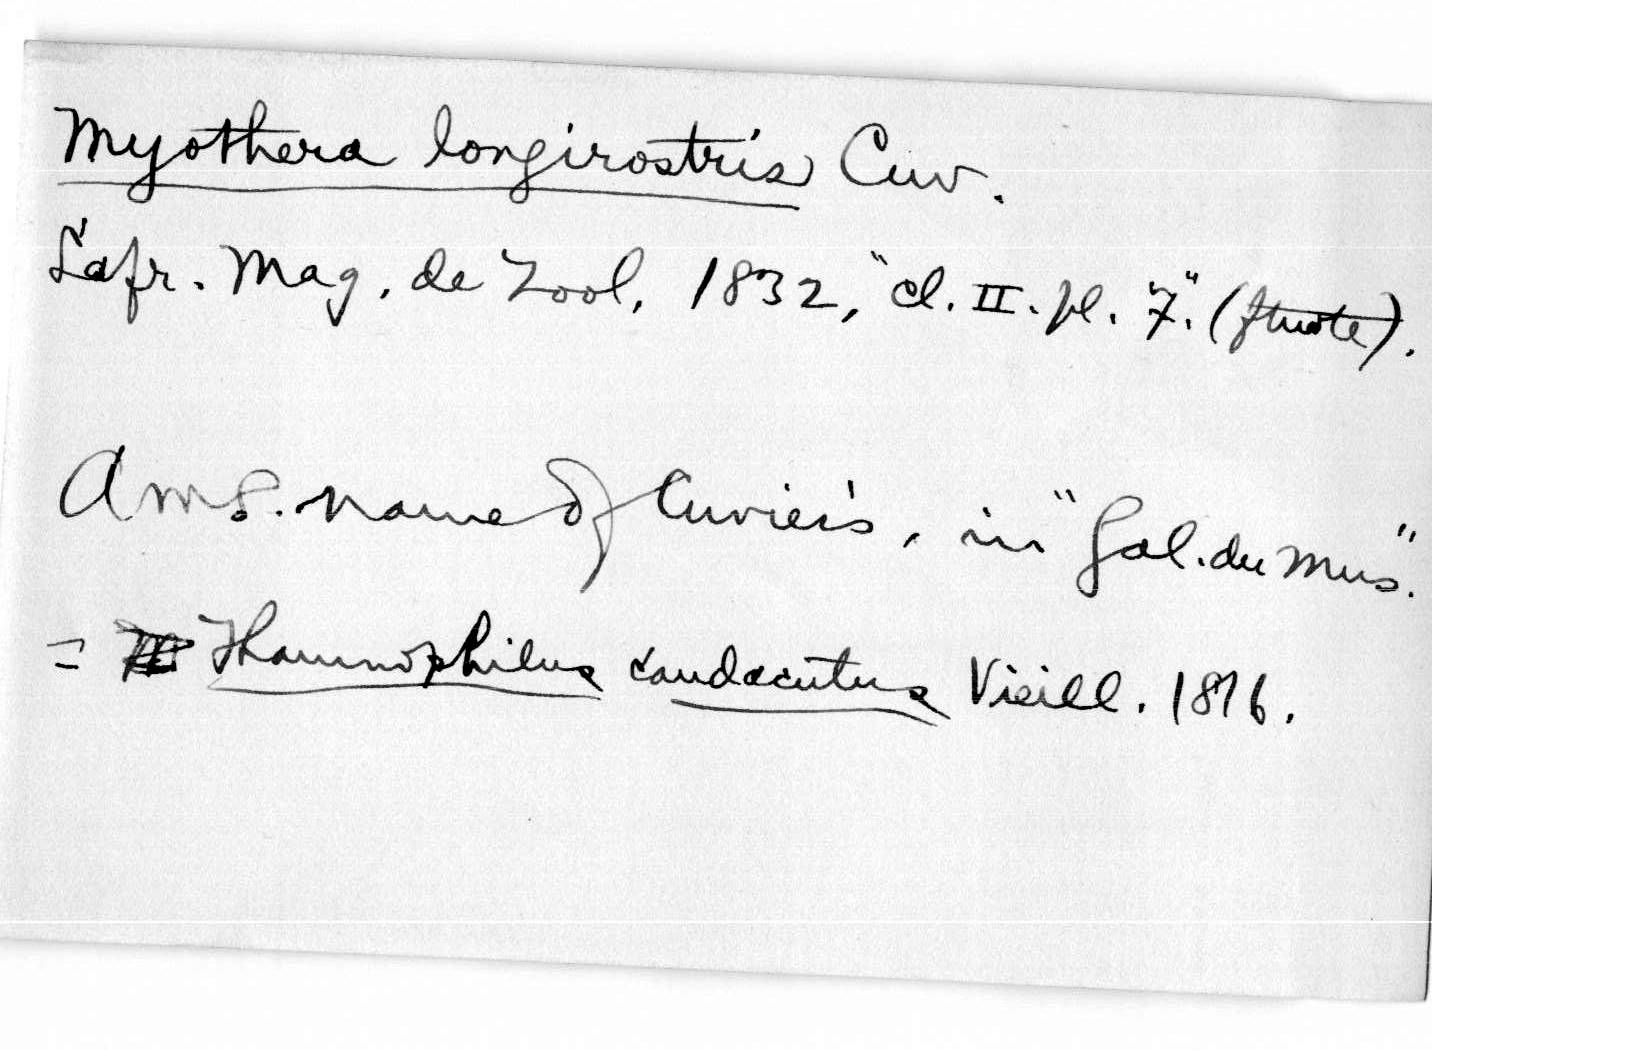 Myothera longirostris Cuv.
Lafr. Mag. de Zool, 1832, "cl. II. pl. 7." (ftnote).
A ms. name of Cuvier's, in "Gal. du Mus".
= Thamnophilus caudacutus Vieill. 1816.